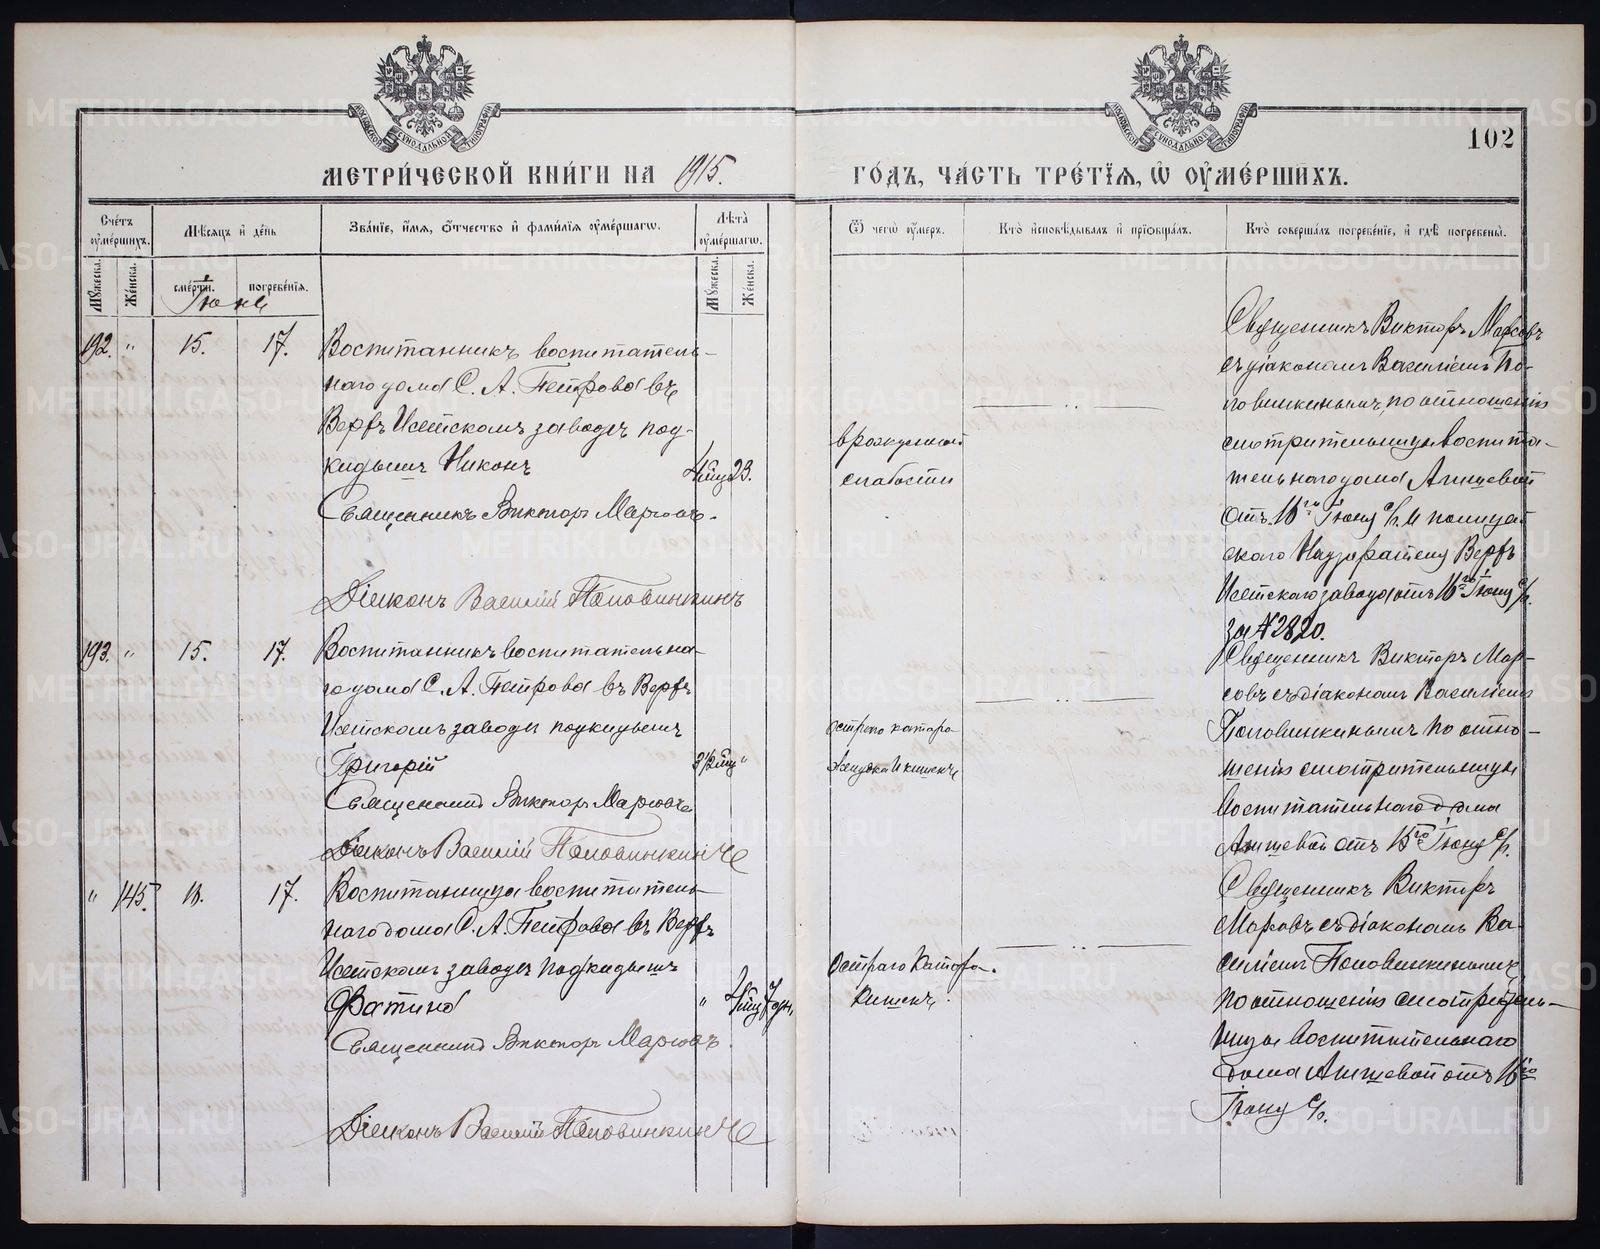 102
МЕТРИЧЕСКОЙ КНИГИ НА 1915. ГОДЪ, ЧАСТЬ ТРЕТІЯ, Ѽ ОУМЕРШИХЪ.
Счетъ оумершихъ.
Мѣсяцъ и день
Званіе, имя, отчество и фамилія оумершагѡ.
Лѣта оумершагѡ.
Ѿ чегѡ оумеръ.
Кто исповѣдывалъ и пріобщалъ.
Кто совершалъ погребеніе, и гдѣ погребены.
Мужеска.
Женска.
смерти.
погребенія.
Мужеска.
Женска.
Іюнь
192. " 15. 17.
Воспитанникъ воспитатель-
наго дома С. А. Петрова въ
Верхъ Исетскомъ заводѣ под-
кидышъ Никонъ
Священникъ Викторъ Марковъ.
Діаконъ Василій Половинкинъ
4 мѣс 23.
врожденной
слабости
Священникъ Викторъ Марковъ
съ діакономъ Василіемъ По-
ловинкинымъ, по отношенію
смотрительницы воспита-
тельнаго дома
отъ 16го Іюня с/г. и полицей
скаго Надзирателя Верхъ
Исетскаго завода отъ 16го Іюня с/г.
за № 2820.
193. " 15. 17.
Воспитанникъ воспитательна-
го дома С. А. Петрова въ Верхъ
Исетскомъ заводѣ подкидышъ
Григорій
Священникъ Викторъ Марковъ
Діаконъ Василій Половинкинъ
3 1/2 мѣс "
Остраго катара
желудка и кишекъ
Священникъ Викторъ Мар-
ковъ съ діакономъ Василіемъ
Половинкинымъ по отно-
шенію смотрительницы
Воспитательнаго дома
отъ 15го Іюня с/г.
" 145. 17.
Воспитанница воспитатель-
наго дома С. А. Петрова въ Верхъ
Исетскомъ заводѣ подкидышъ
Фатина
Священникъ Викторъ Марковъ
Діаконъ Василій Половинкинъ
" 4 мѣс 7 дн.
Остраго Катара.
Кишекъ.
Священникъ Викторъ
Марковъ съ діакономъ Ва-
силіемъ Половинкинымъ
по отношенію смотритель-
ницы Воспитательнаго
дома отъ 16го
Іюня с/г.
METRIKI.GASO-URAL.RU